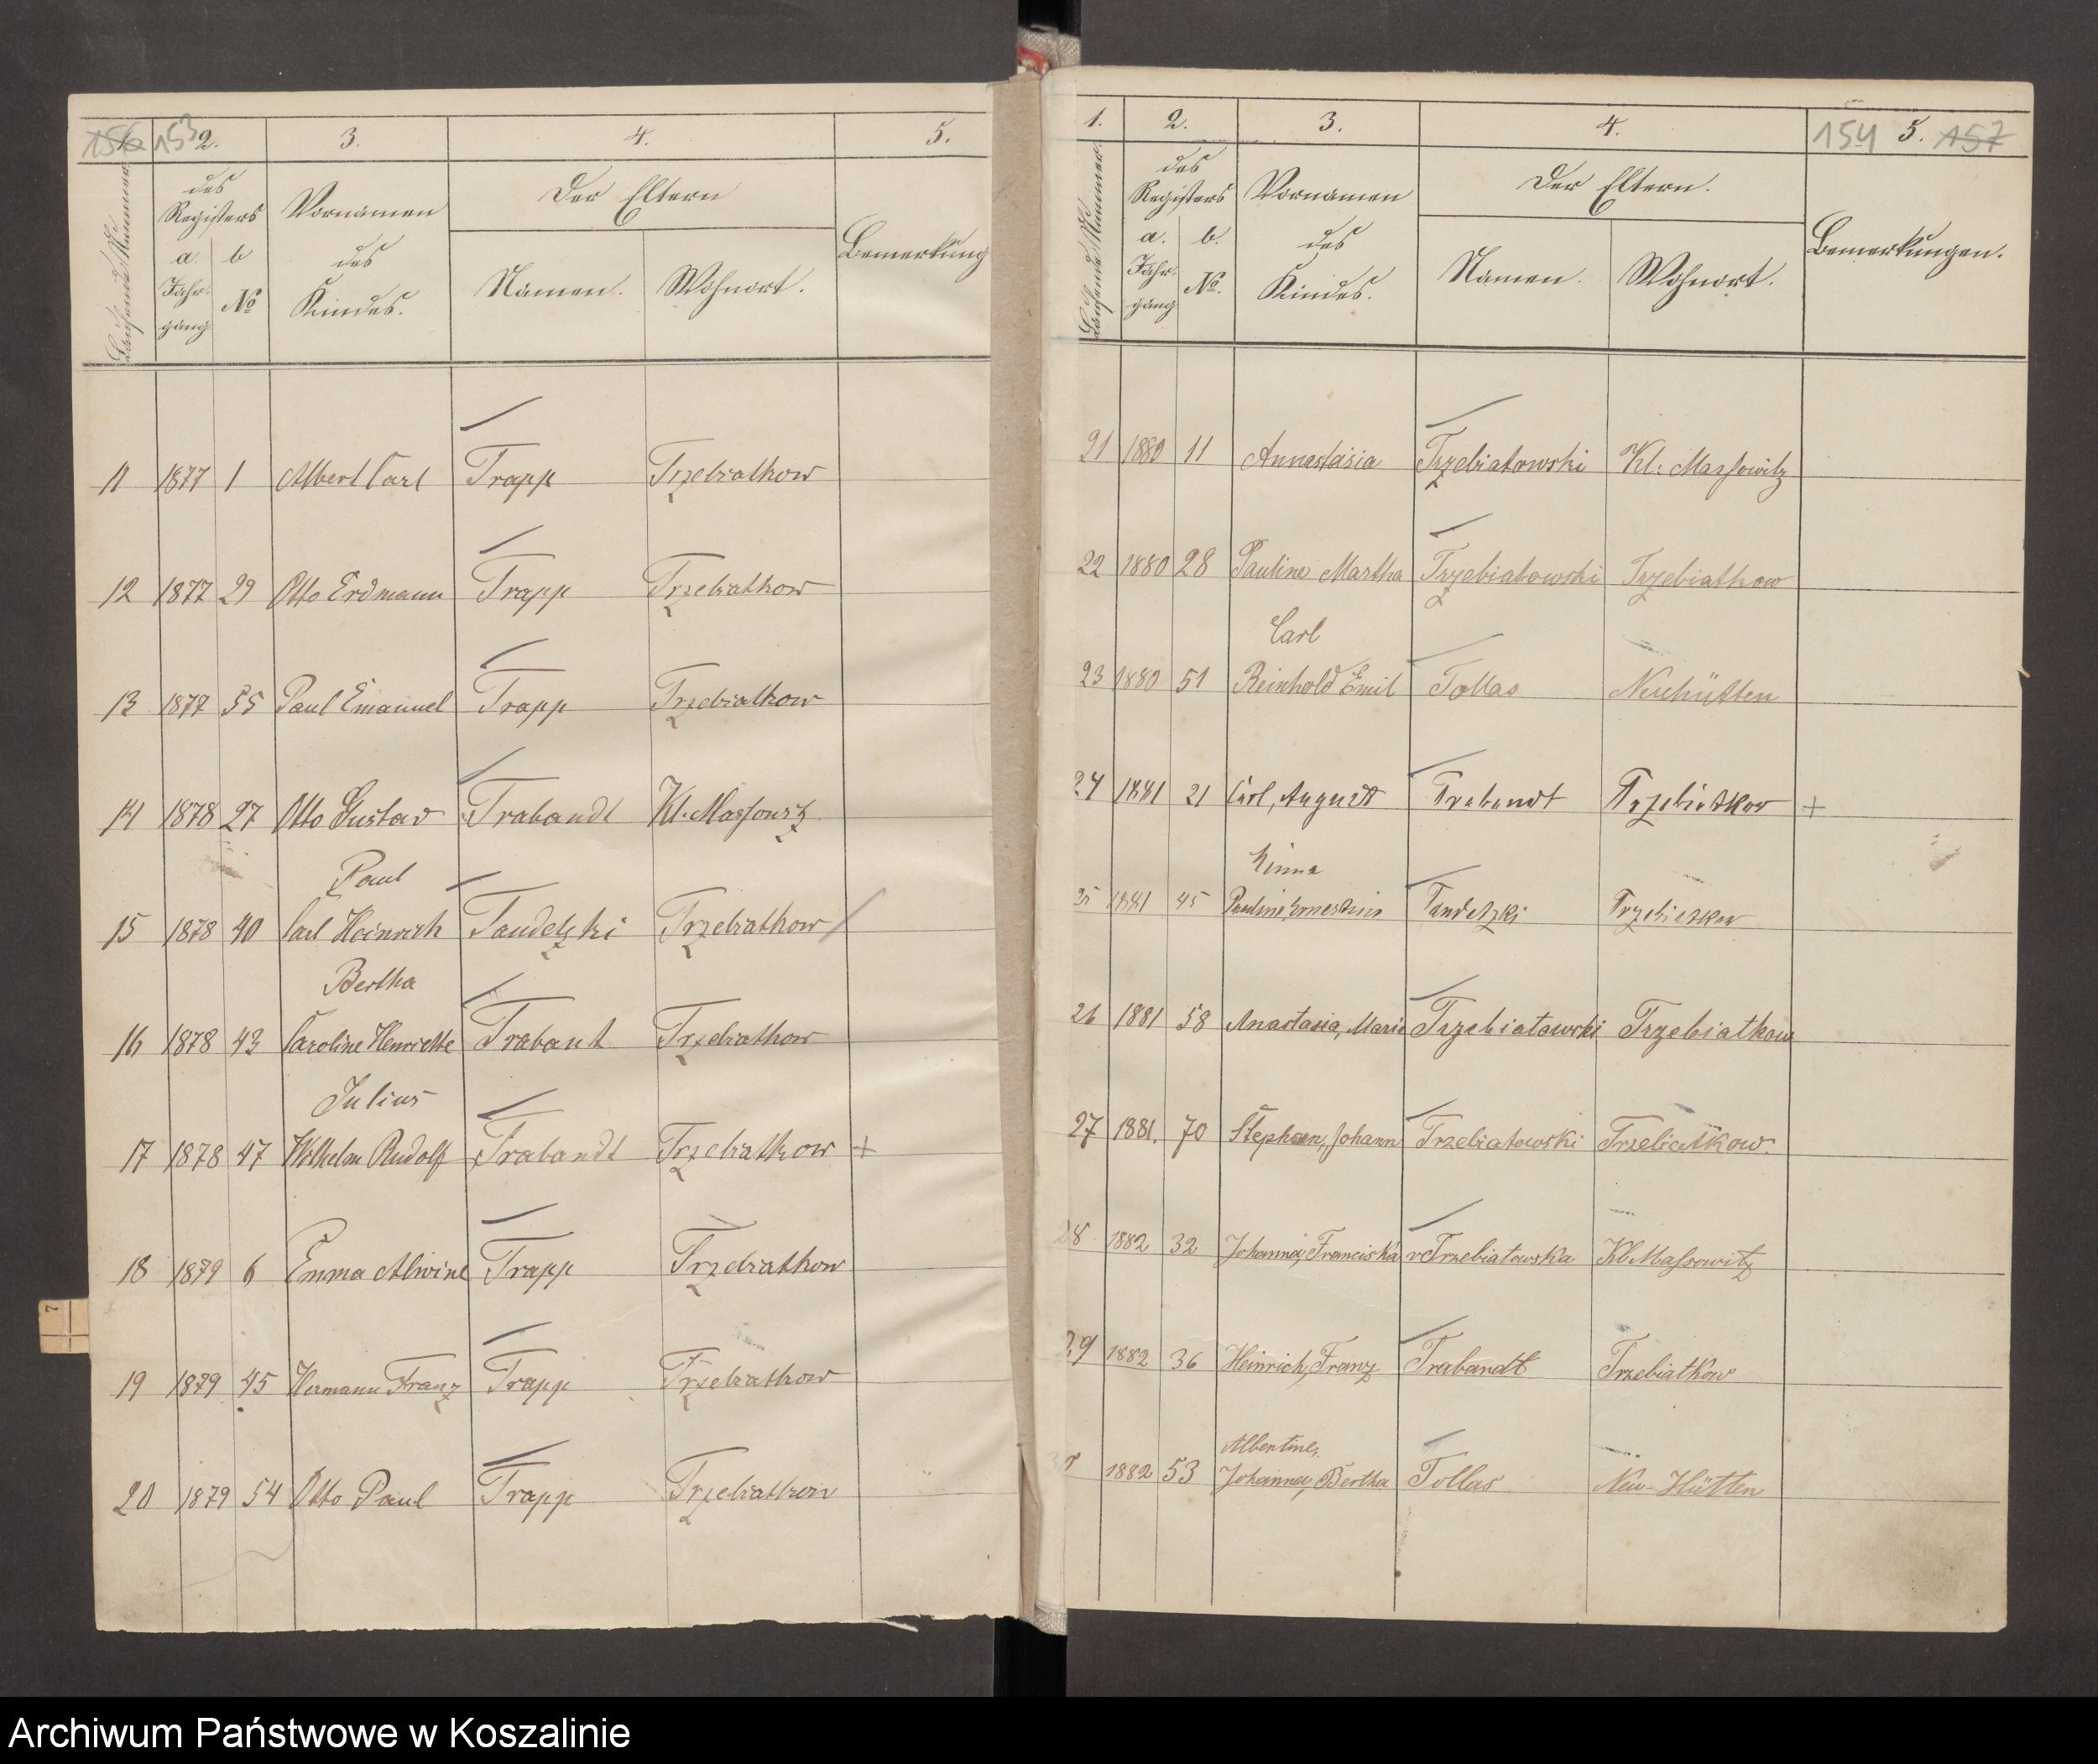 156 153 2. 3. 4. 5.
Laufende Nummer.
des Registers
a. b
Jahrgang
No
Vornamen
des
Kindes.
Der Eltern
Namen. Wohnort.
Bemerkung
11 1877 1 Albert Carl Trapp Trzebiatkow
12 1877 29 Otto Erdmann Trapp Trzebiatkow
13 1877 55 Paul Emanuel Trapp Trzebiatkow
14 1878 27 Otto Gustav Trabandt Kl. Massowitz
Paul
15 1878 40 Carl Heinrich Taudetzki Trzebiatkow
Bertha
16 1878 43 Caroline Henriette Trabant Trzebiatkow
Julius
17 1878 47 Wilhelm Rudolf Trabandt Trzebiatkow +
18 1879 6 Emma Alwine Trapp Trzebiatkow
19 1879 45 Hermann Franz Trapp Trzebiatkow
20 1879 54 Otto Paul Trapp Trzebiatkow
1. 2. 3. 4. 154 5. 157
Laufende Nummer.
des Registers
a. b.
Jahrgang
No.
Vornamen
des
Kindes.
Der Eltern.
Namen. Wohnort.
Bemerkungen.
21 1880 11 Annastasia Trzebiatowski Kl. Massowitz
22 1880 28 Pauline Martha Trzebiatowski Trzebiatkow
Carl
23 1880 51 Reinhold Emil Tollas Neuhütten
24 1881 21 Carl, August Trabandt Trzebiatkow +
25 1881 45 Pauline Ernestine Tandetzki Trzebiatkow
26 1881 58 Anastasia, Marie Trzebiatowski Trzebiatkow
27 1881. 70 Stephan, Johann Trzebiatowski Trzebiatkow.
28 1882 32 Johanna, Franciska v Trzebiatowska Kl. Massowitz
29 1882 36 Heinrich, Franz Trabandt Trzebiatkow
Albertine,
1882 53 Johanna, Bertha Tollas Neu-Hütten
7
Archiwum Państwowe w Koszalinie